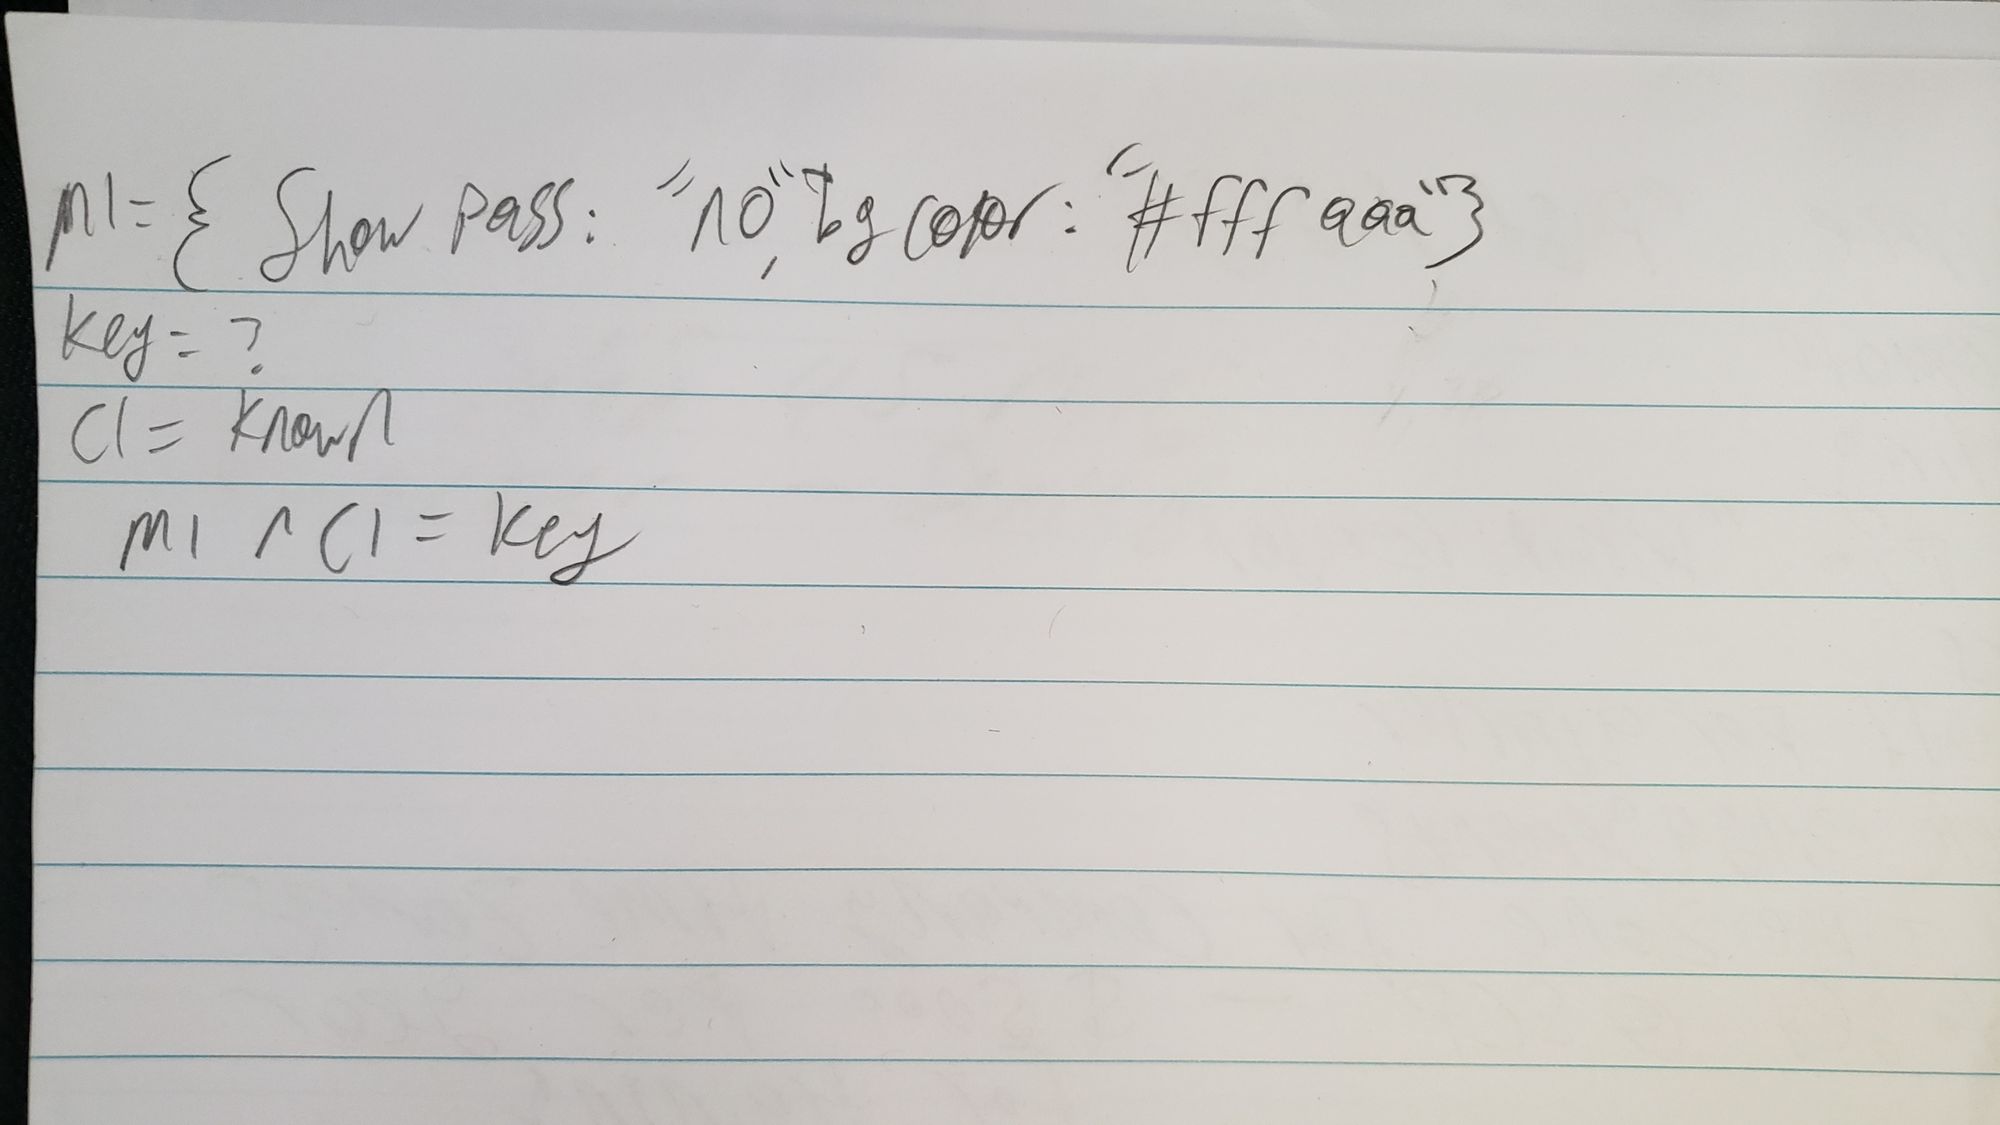 m1 = { Show pass: "no", bgcolor: "#fffaaa"}
key = ?
C1 = known
m1 ^ C1 = key